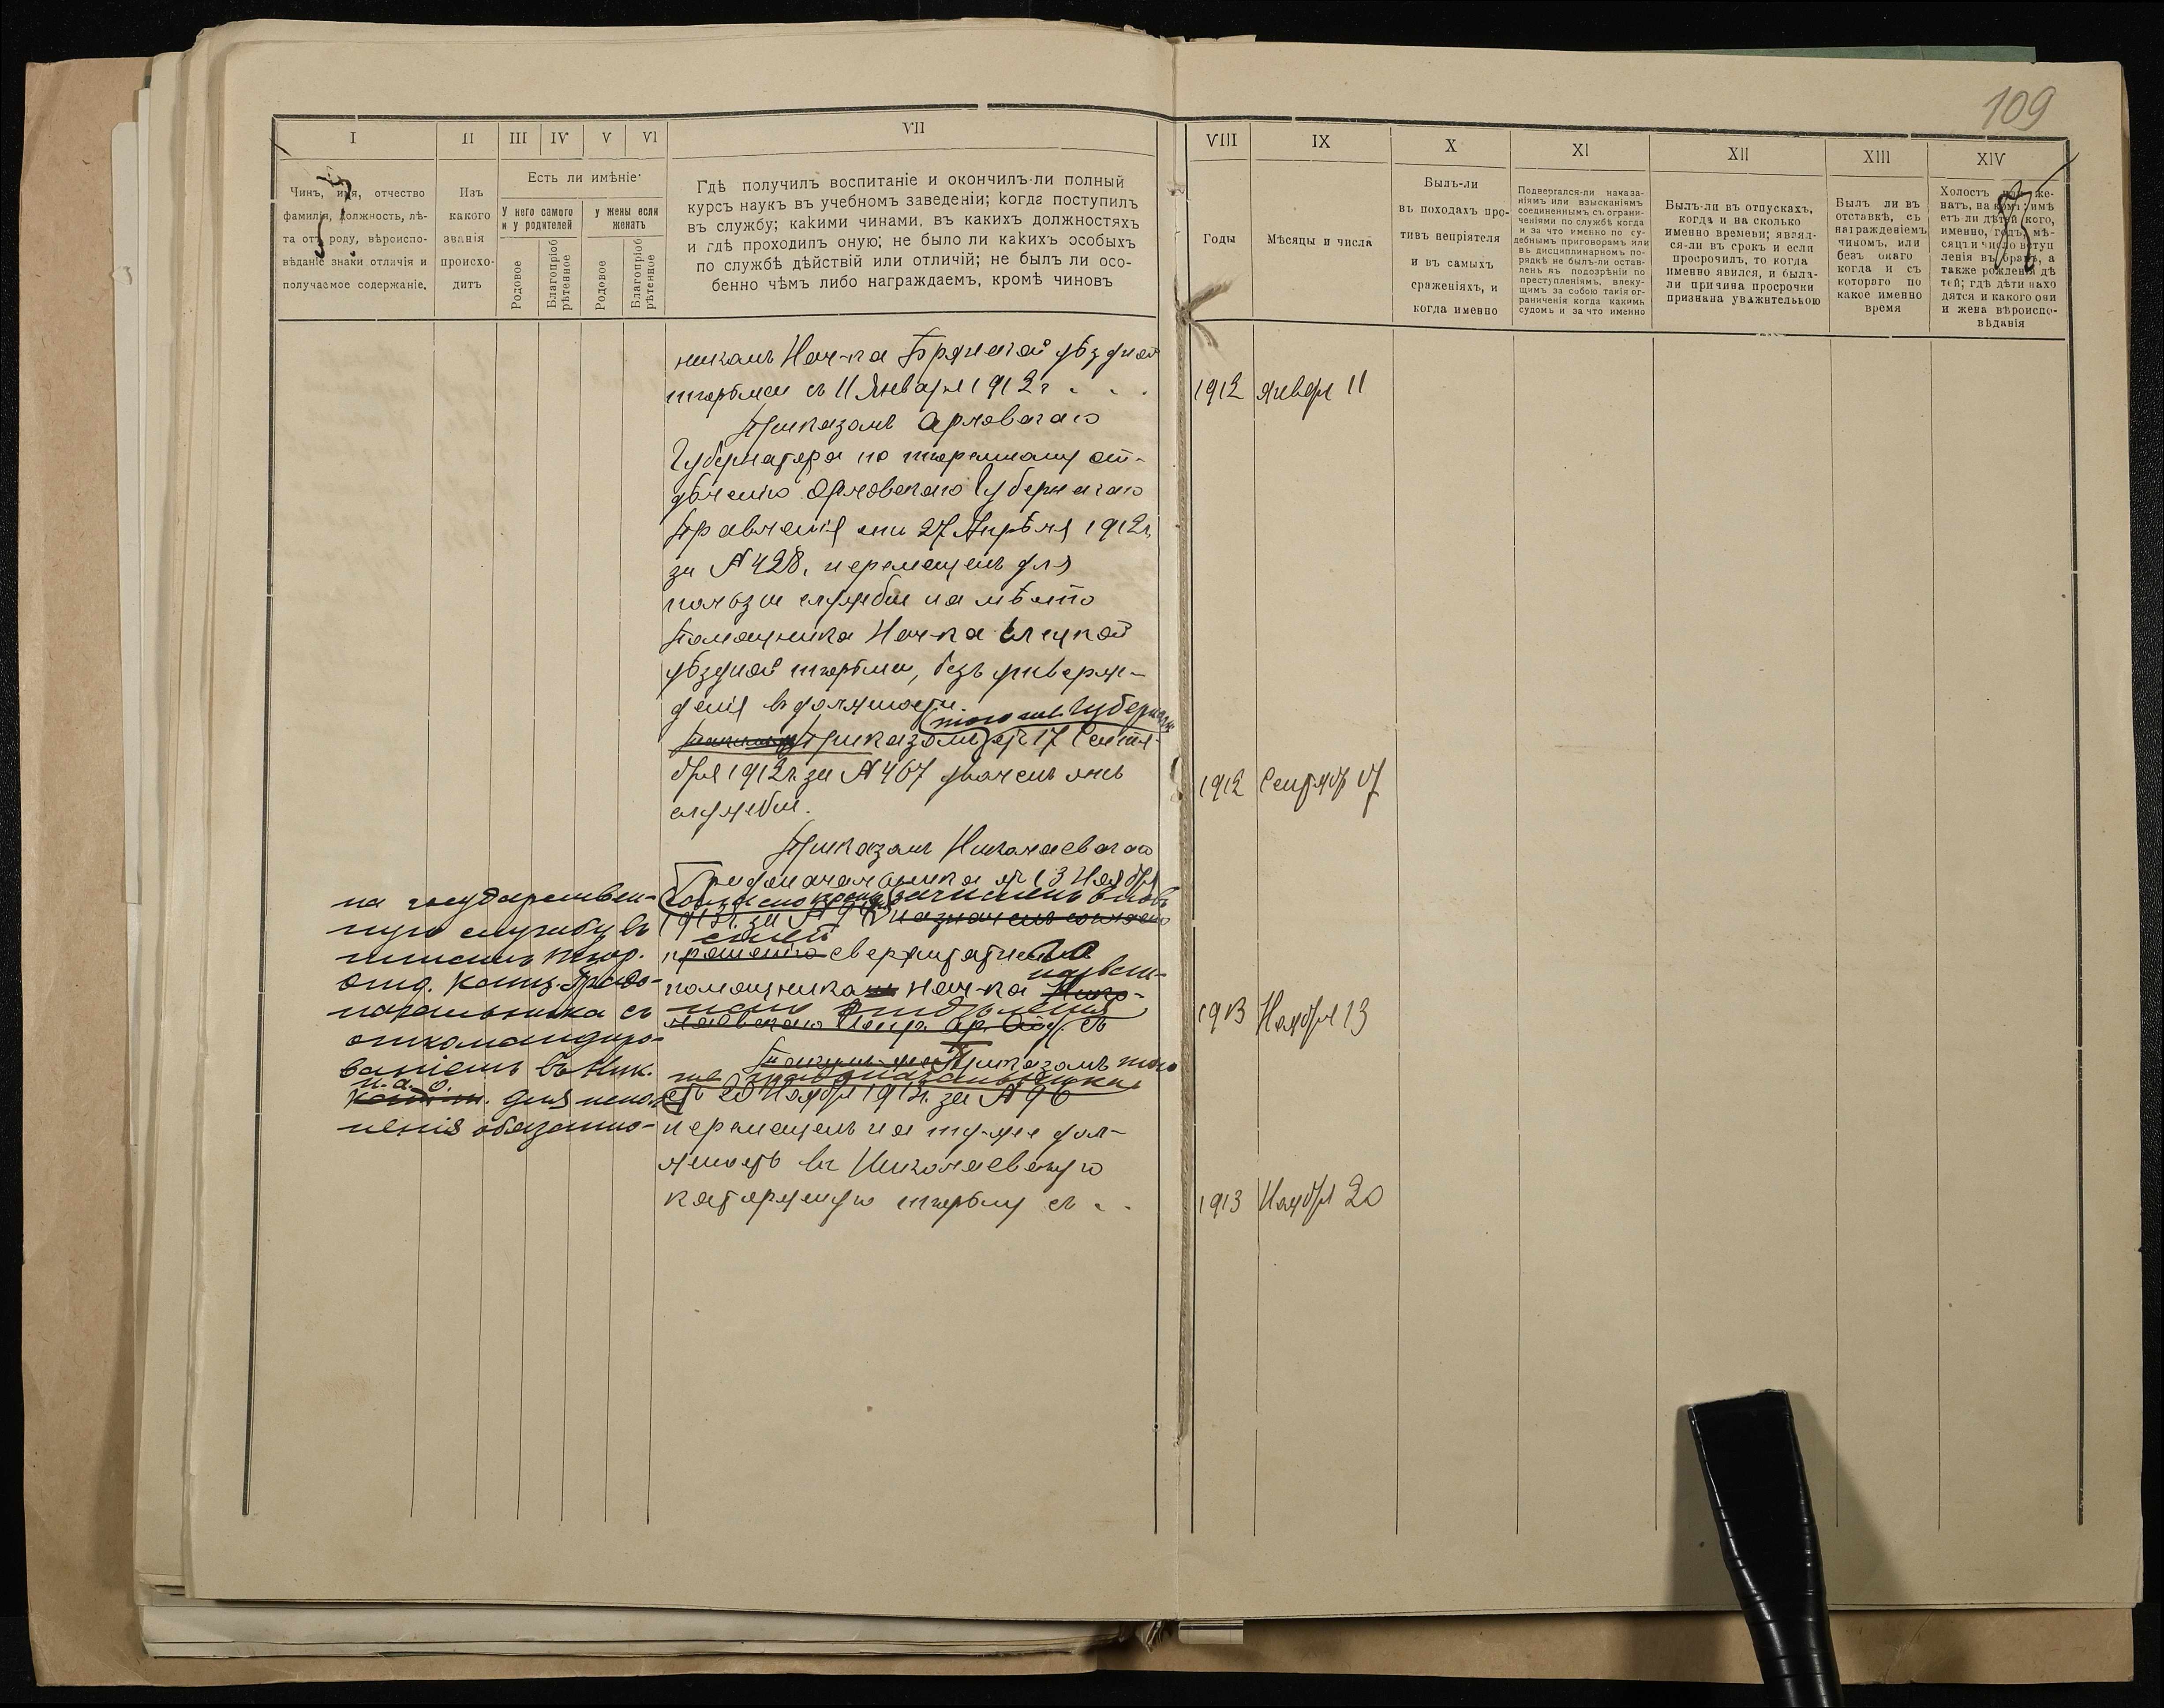 109
I
II
III
IV
V
VI
VII
VIII
IX
X
XI
XII
XIII
XIV
Чинъ, имя, отчество
фамилія, должность, лѣ-
та отъ роду, вѣроиспо-
вѣданіе знаки отличія и
получаемое содержаніе,
Изъ
какого
званія
происхо-
дитъ
Есть ли имѣніе
У него самого
и у родителей
у жены если
женатъ
Родовое
Благопріоб
рѣтенное
Родовое
Благопріоб
рѣтенное
Гдѣ получилъ воспитаніе и окончилъ-ли полный
курсъ наукъ въ учебномъ заведеніи; когда поступилъ
въ службу; какими чинами, въ какихъ должностяхъ
и гдѣ проходилъ оную; не было ли какихъ особыхъ
по службѣ дѣйствій или отличій; не былъ ли осо-
бенно чѣмъ либо награждаемъ, кромѣ чиновъ
Годы
Мѣсяцы и числа
Былъ-ли
въ походахъ про-
тивъ непріятеля
и въ самыхъ
сраженіяхъ, и
когда именно
Подвергался-ли наказа-
ніямъ или взысканіямъ
соединеннымъ съ ограни-
ченіями по службѣ когда
и за что именно по су-
дебнымъ приговорамъ или
въ дисциплинарномъ по-
рядкѣ не былъ-ли остав-
ленъ въ подозрѣніи по
преступленіямъ, влеку-
щимъ за собою такія ог-
раниченія когда какимъ
судомъ и за что именно
Былъ-ли въ отпускахъ,
когда и на сколько
именно времени; являл-
ся-ли въ срокъ и если
просрочилъ, то когда
именно явился, и была-
ли причина просрочки
признана уважительною
Былъ ли въ
отставкѣ, съ
награжденіемъ
чиномъ, или
безъ онаго
когда и съ
котораго по
какое именно
время
Холостъ или же-
натъ, на комъ; имѣ
етъ ли дѣтей кого,
именно, годъ, мѣ-
сяцъ и число вступ
ленія въ бракъ, а
также рожденія дѣ
тей; гдѣ дѣти нахо
дятся и какого они
и жена вѣроиспо-
вѣданія
никомъ Нач-ка Брянской уѣздной
тюрьмы съ 11 Января 1912 г.
1912 Январ 11
Приказомъ Орловскаго
Губернатора по тюремному от-
дѣленію Орловскаго Губернскаго
Правленія отъ 27 Апрѣля 1912 г.
за № 428, перемещенъ для
пользы службы на мѣсто
Помощника Нач-ка Елецкой
уѣздной тюрьмы, безъ утверж-
денія въ должности.
того же Губернат
Приказомъ отъ 17 Сентя-
бря 1912 г. за № 467 уволенъ отъ
службы.
1912 Сентябр 17
Приказомъ Николаевскаго
Градоначальника отъ 13 Ноября
Согласно прошенія зачисленъ вновь
1913 г. за № 96 назначенъ согласно
прошенію сверхштатнымъ
помощникомъ Нач-ка
отдѣленія
съ
1913 Ноября 13
на государствен-
ную службу въ
тюр.
отд. Канц. Градо-
начальника съ
откомандиро-
ваніемъ въ Ник.
и. а. о.
для испол
ненія обязанно-
Приказомъ того
же градоначальника
отъ 20 Ноября 1913 г. за № 96
перемещенъ на ту-же дол-
жность въ Николаевскую
каторжную тюрьму съ
1913 Ноября 20